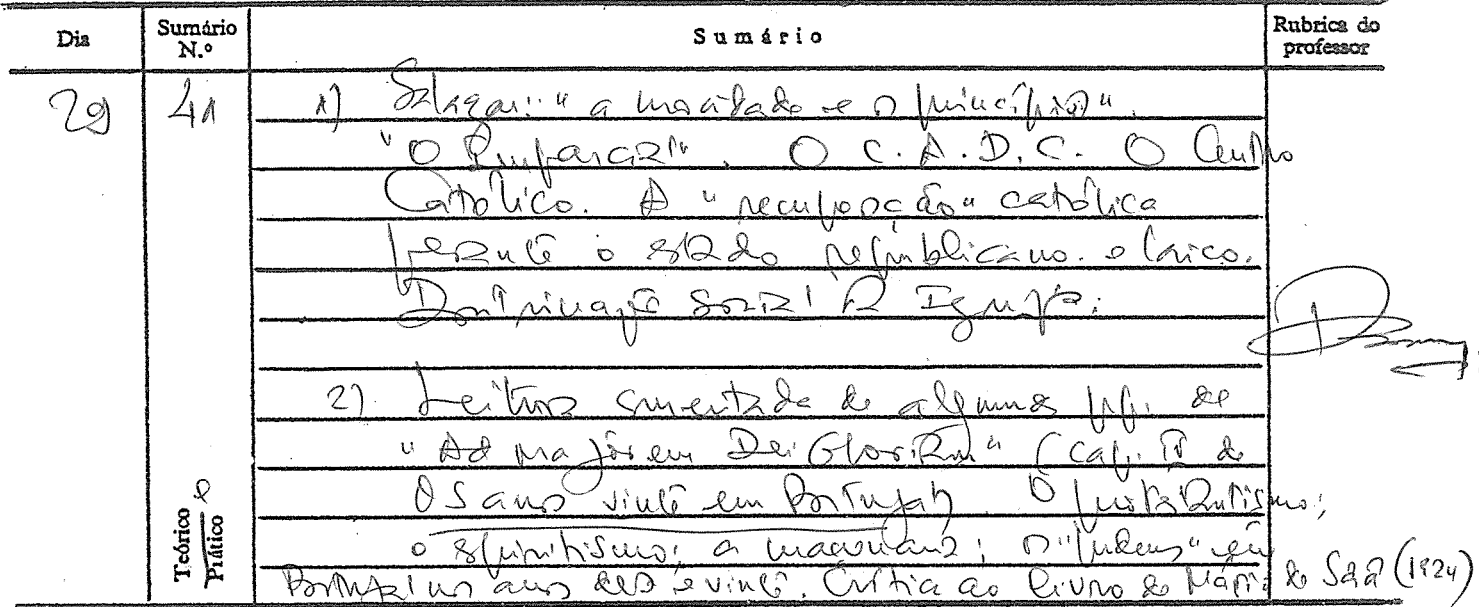 Dia Sumário N.º Sumário Rubrica do professor
29 41 1) Salazar: "a mocidade e os princípios".
"O Imparcial". O C.A.D.C. O Centro
Católico. A "recuperação" católica
perante o estado republicano e laico.
Doutrinação social da Igreja.
2) Leitura comentada de algumas pp. de
"Ad majorem Dei Gloriam" (cap. IV de
Os anos vinte em Portugal). O protestantismo;
o espiritismo; a maçonaria; os "judeus" em
Portugal nos anos dez e vinte. Crítica ao livro de Mário de Saa (1924)
Teórico e Prático